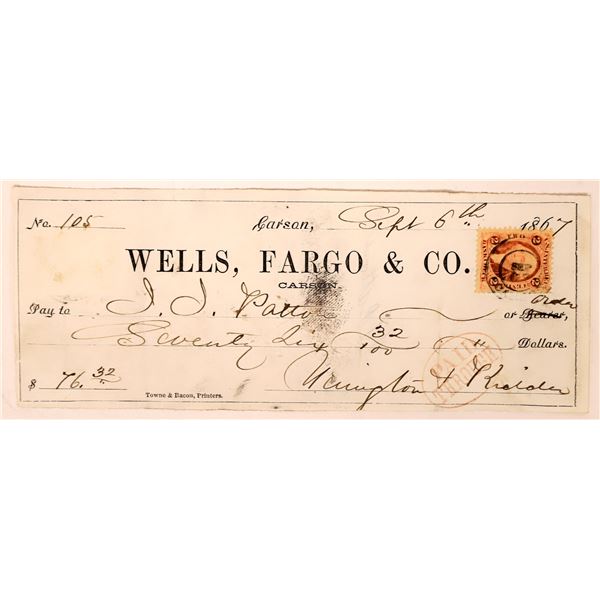 No. 105 Carson, Sept 6th 1867
WELLS, FARGO & CO.
CARSON.
Pay to J. J. Patto or Bearer, Order
Seventy Six 32/100 " Dollars.
$ 76.32 & Kidder
PAID
Towne & Bacon, Printers.
TWO